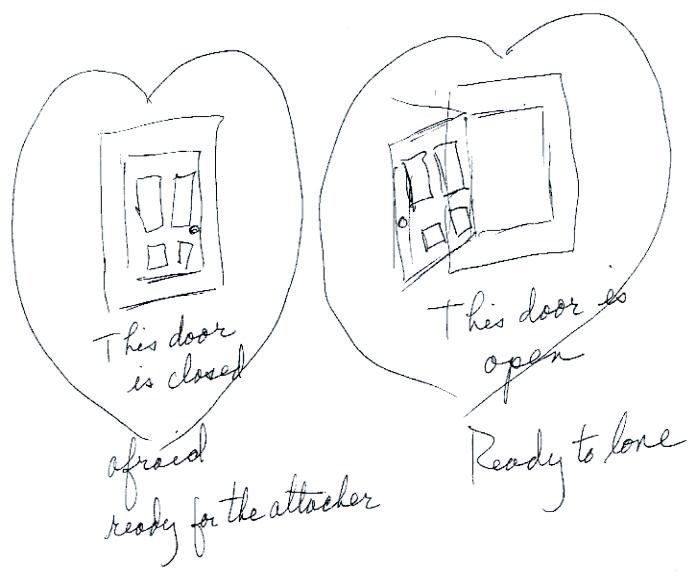 This door
is closed
afraid
ready for the attacher
This door is
open
Ready to love